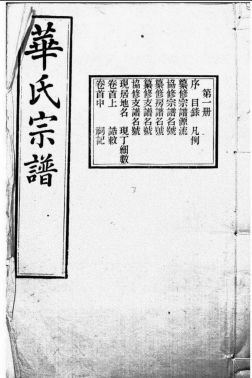 華氏宗譜
第一册
序 目錄 凡例
纂修宗譜源流
協修宗譜名號
纂修房譜名號
纂修支譜名號
協修支譜名號
現居地名 現丁細數
卷首上 誥敕
卷首中 祠記